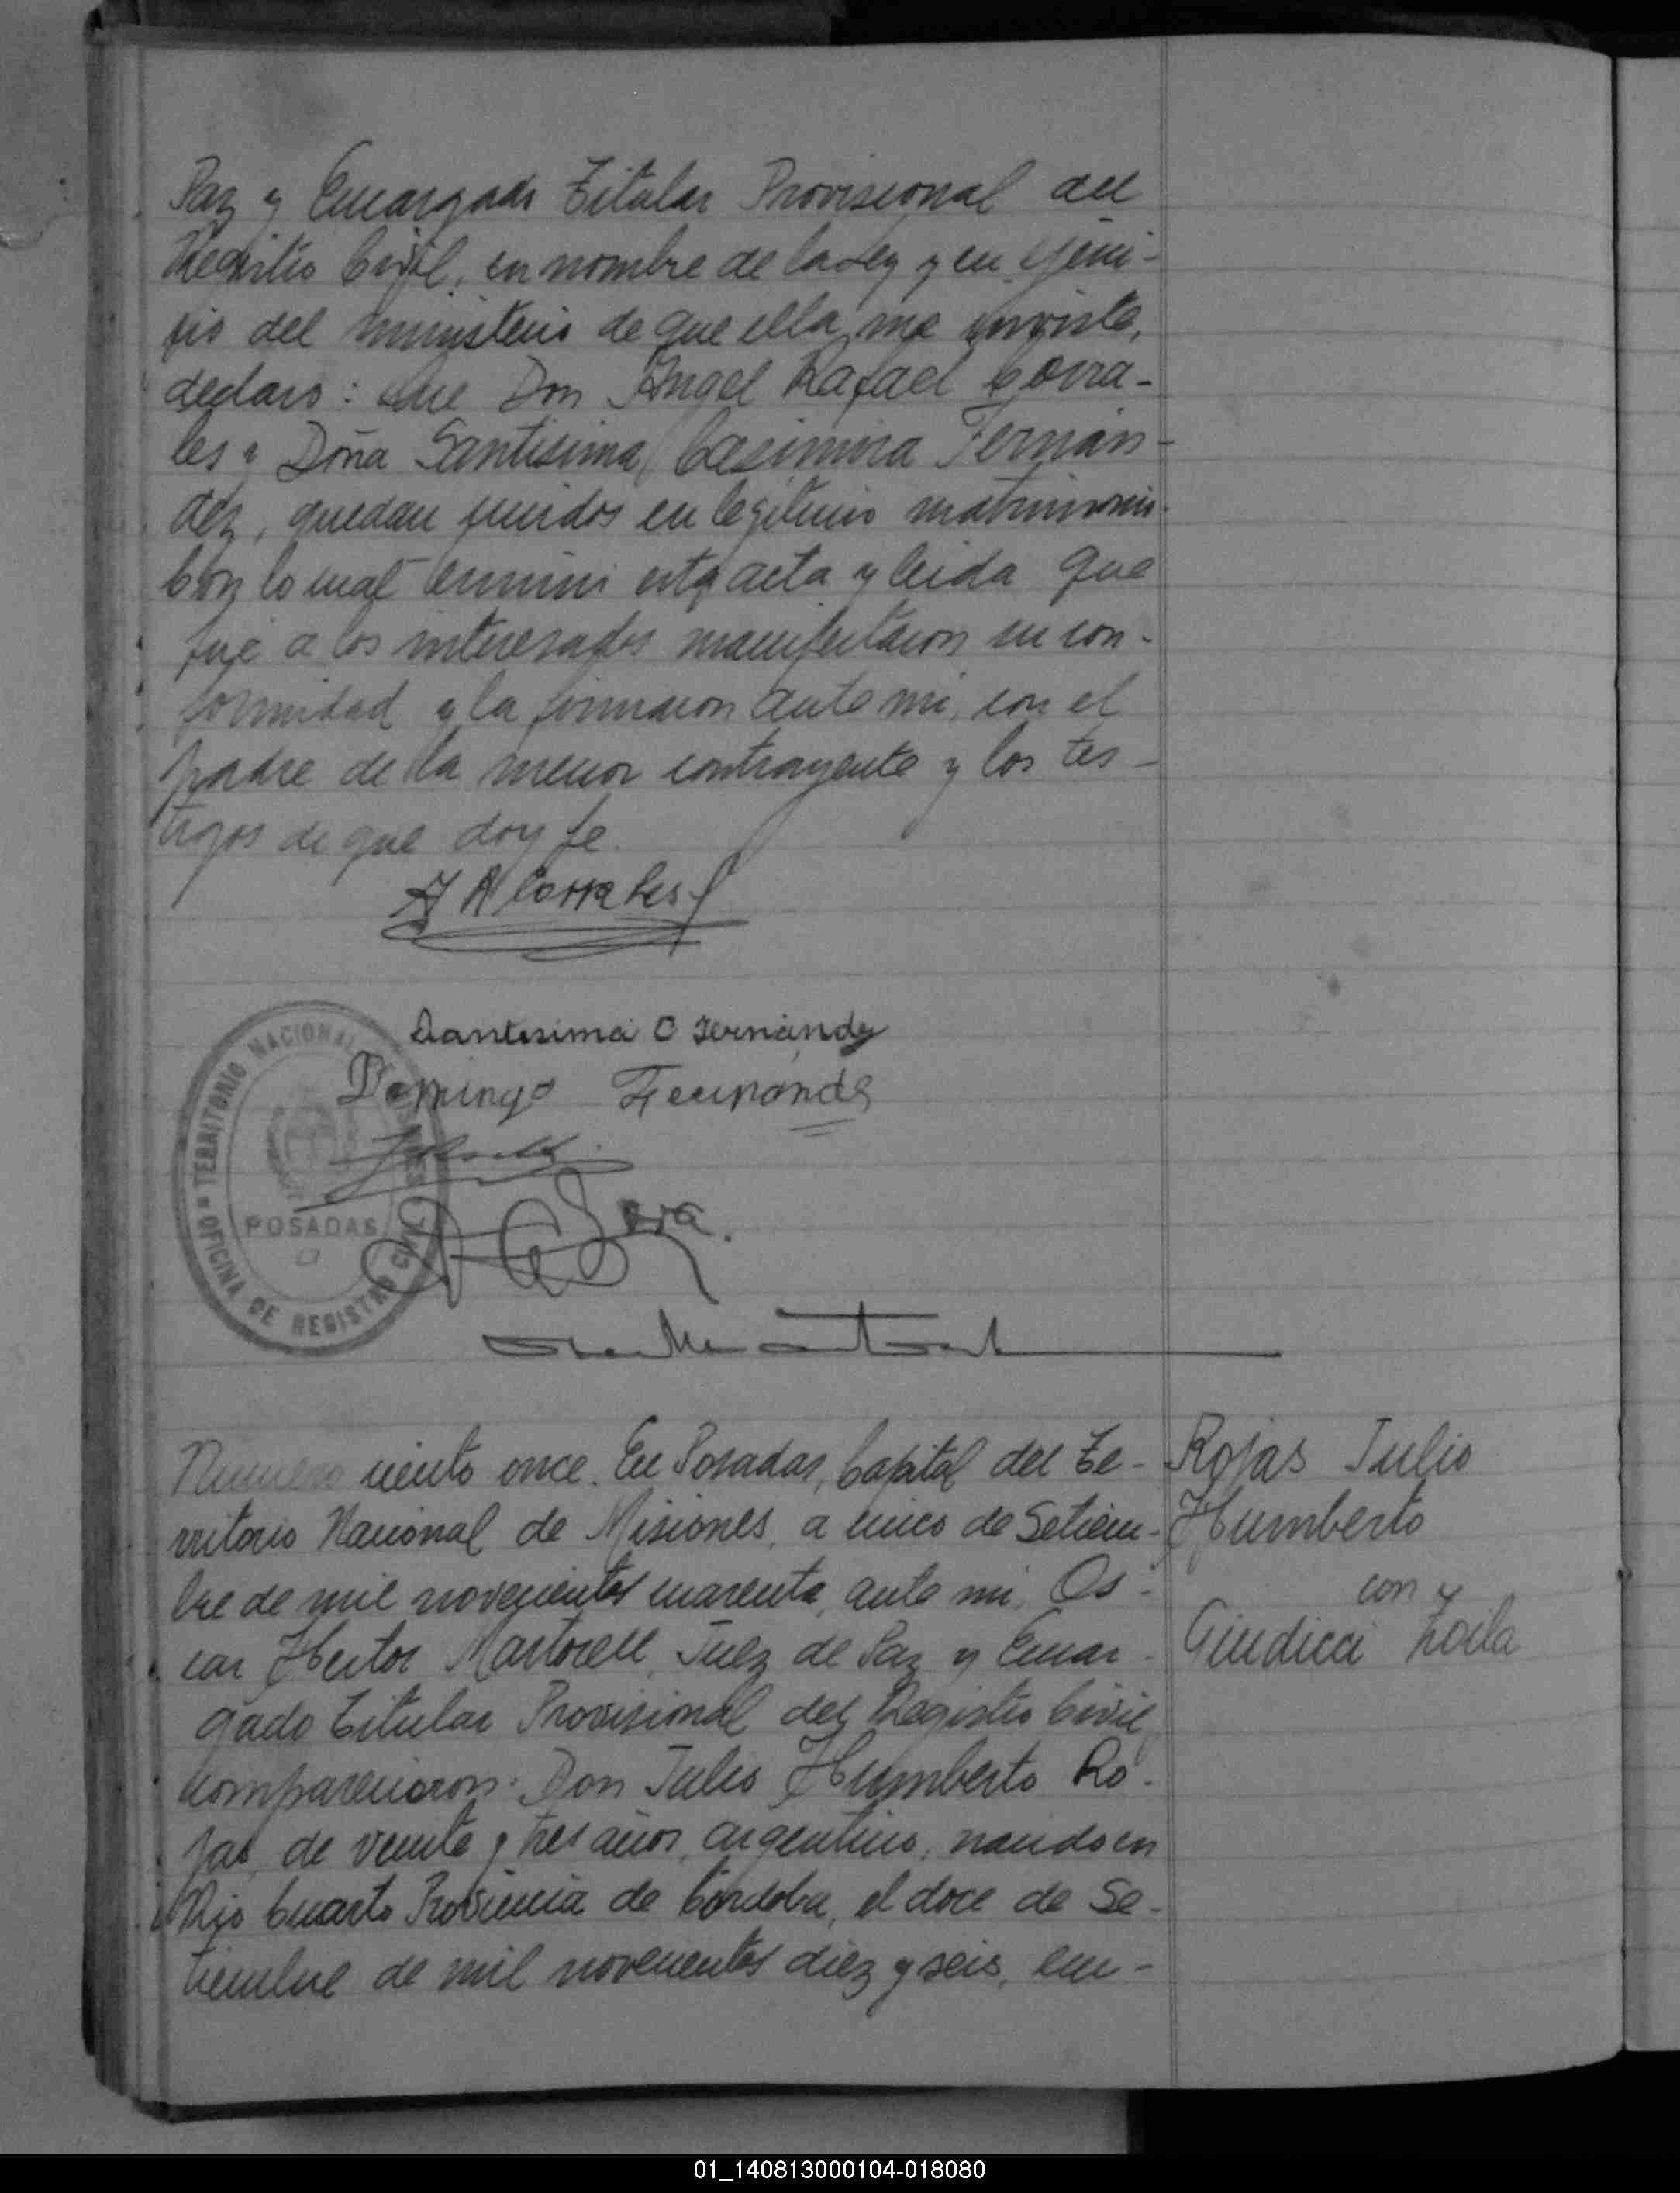 Paz y Encargado Titular Provisional del
Registro Civil, en nombre de la Ley y en ejerci-
cio del ministerio de que ella me inviste,
declaro: Que Don Angel Rafael Corra-
les y Doña Santisima Casimira Fernán-
dez, quedan unidos en legitimo matrimonio.
Con lo cual terminó esta acta y leida que
fué a los interesados manifestaron su con-
formidad y la firmaron ante mi, con el
padre de la menor contrayente y los tes-
tigos de que doy fe.
A R Corrales
Santisima C Fernández
Domingo Fernandes
TERRITORIO NACIONAL DE MISIONES
POSADAS
OFICINA DE REGISTRO CIVIL
Numero ciento once. En Posadas, Capital del Te-
rritorio Nacional de Misiones, a cinco de Setiem-
bre de mil novecientos cuarenta, ante mi, Os-
car Hector Martorell, Juez de Paz y Encar-
gado Titular Provisional del Registro Civil,
comparecieron: Don Julio Humberto Ro-
jas, de veinte y tres años, argentino, nacido en
Rio Cuarto Provincia de Córdoba, el doce de Se-
tiembre de mil novecientos diez y seis, em-
Rojas Julio
Humberto
con
Giudicci Zoila
01_140813000104-018080